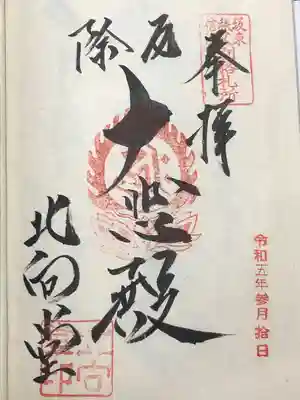 令和五年参月拾日
奉拝
厄除
大悲殿
北向堂